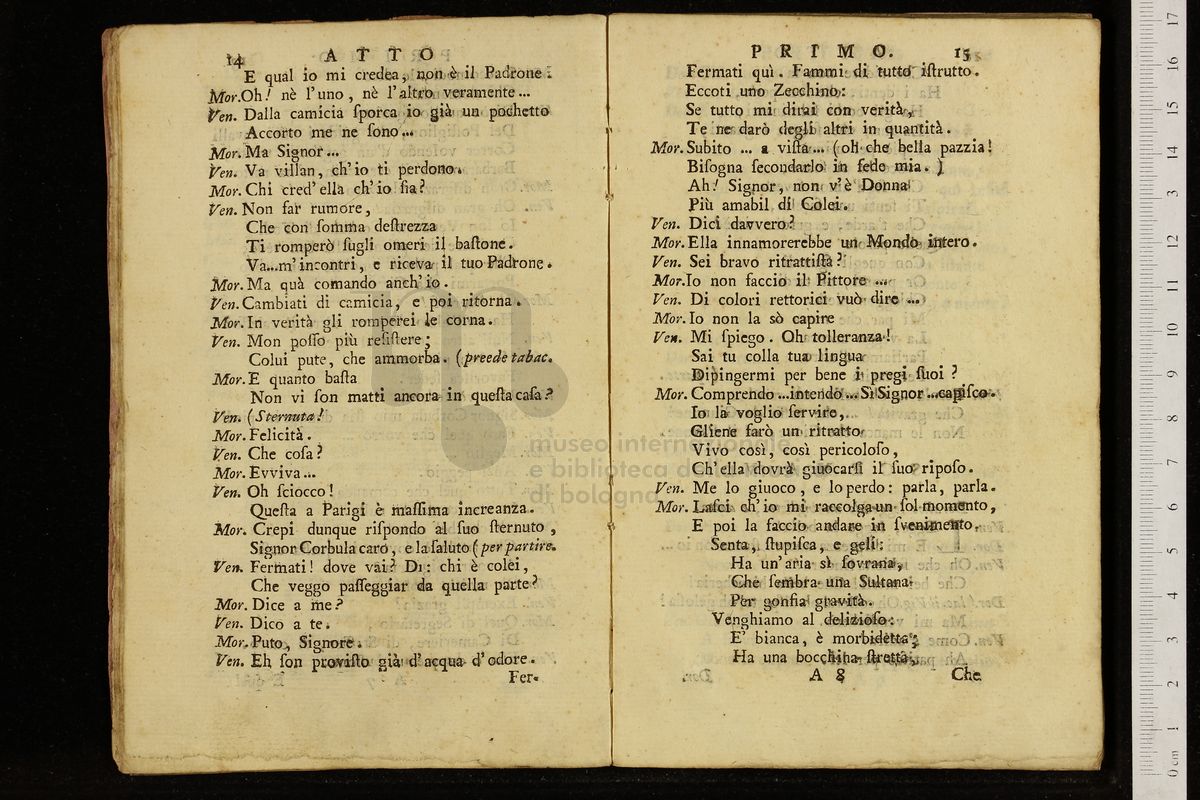 14 ATTO
E qual io mi credea, non è il Padrone.
Mor. Oh! nè l'uno, nè l'altro veramente...
Ven. Dalla camicia ſporca io già un pochetto
Accorto me ne ſono...
Mor. Ma Signor...
Ven. Va villan, ch'io ti perdono.
Mor. Chi cred'ella ch'io ſia?
Ven. Non far rumore,
Che con ſomma deſtrezza
Ti romperò ſugli omeri il baſtone.
Va...m'incontri, e riceva il tuo Padrone.
Mor. Ma quà comando anch'io.
Ven. Cambiati di camicia, e poi ritorna.
Mor. In verità gli romperei le corna.
Ven. Mon poſſo più reſiſtere;
Colui pute, che ammorba. (preede tabac.
Mor. E quanto baſta
Non vi ſon matti ancora in queſta caſa?
Ven. (Sternuta!
Mor. Felicità.
Ven. Che coſa?
Mor. Evviva...
Ven. Oh ſciocco!
Queſta a Parigi è maſſima increanza.
Mor. Crepi dunque riſpondo al ſuo ſternuto,
Signor Corbula caro, e la ſaluto (per partire.
Ven. Fermati! dove vai? Di: chi è colei,
Che veggo paſſeggiar da quella parte?
Mor. Dice a me?
Ven. Dico a te.
Mor. Puto, Signore.
Ven. Eh ſon proviſto già d'acqua d'odore.
Fer-
PRIMO. 15
Fermati quì. Fammi di tutto iſtrutto.
Eccoti uno Zecchino:
Se tutto mi dirai con verità,
Te ne darò degli altri in quantità.
Mor. Subito ... a viſta ... (oh che bella pazzia!
Biſogna ſecondarlo in fede mia.)
Ah! Signor, non v'è Donna
Più amabil di Colei.
Ven. Dici davvero?
Mor. Ella innamorerebbe un Mondo intero.
Ven. Sei bravo ritrattiſta?
Mor. Io non faccio il Pittore ...
Ven. Di colori rettorici vuò dire ...
Mor. Io non la sò capire
Ven. Mi ſpiego. Oh tolleranza!
Sai tu colla tua lingua
Dipingermi per bene i pregi ſuoi?
Mor. Comprendo ...intendo ... Sì Signor ...capiſco.
Io la voglio ſervire,
Gliene farò un ritratto
Vivo così, così pericoloſo,
Ch'ella dovrà giuocarſi il ſuo ripoſo.
Ven. Me lo giuoco, e lo perdo: parla, parla.
Mor. Laſci ch'io mi raccolga un ſol momento,
E poi la faccio andare in ſvenimento.
Senta, ſtupiſca, e geli:
Ha un'aria sì ſovrana,
Che ſembra una Sultana
Per gonfia gravità.
Venghiamo al delizioſo:
E' bianca, è morbidetta;
Ha una bocchina ſtretta,
A 8 Che
museo internazionale
e biblioteca della musica
di bologna